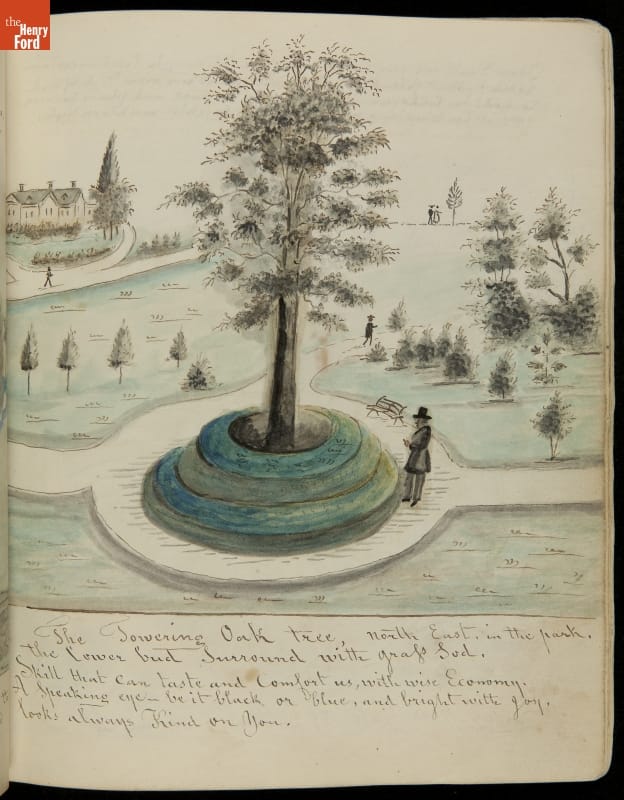 the
Henry
Ford
The Towering Oak tree, north East, in the park.
the Lower bud Surround with graſs Sod.
Skill that can taste and Comfort us, with wise Economy.
A Speaking eye – be it black or blue, and bright with joy,
looks always Kind on You.